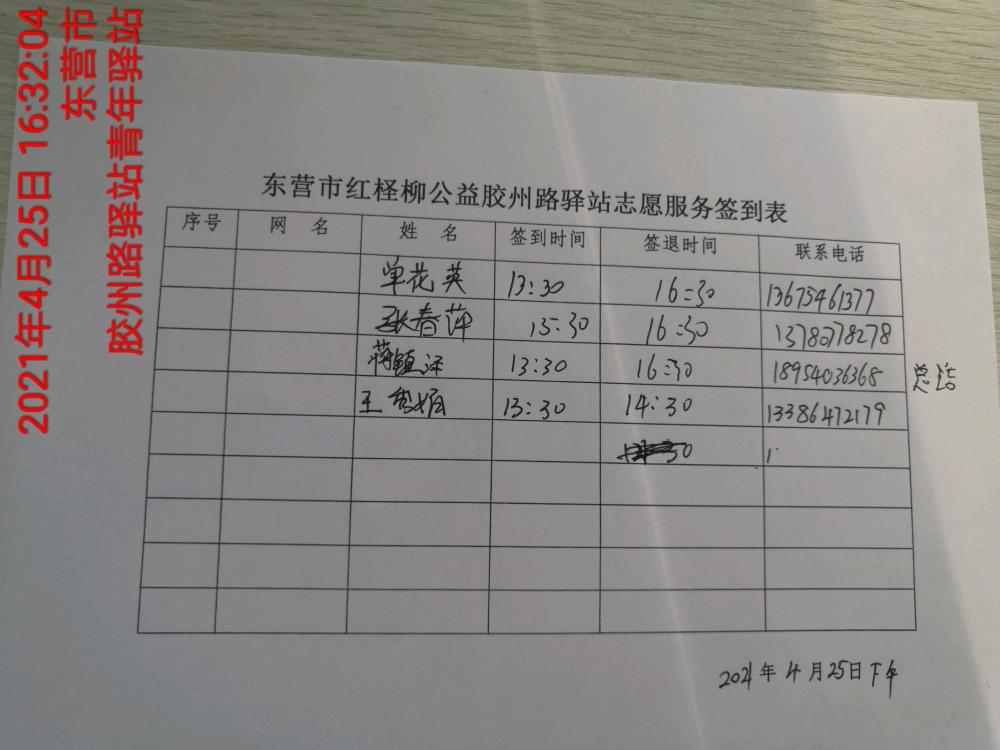 2021年4月25日 16:32:04
东营市
胶州路驿站青年驿站
东营市红柽柳公益胶州路驿站志愿服务签到表
序号 网 名 姓 名 签到时间 签退时间 联系电话
单花英 13:30 16:30 13675461377
张春萍 15:30 16:30 13780778278
蒋镇 13:30 16:30 18954036368 总结
王 13:30 14:30 13386472179
2021年4月25日下午